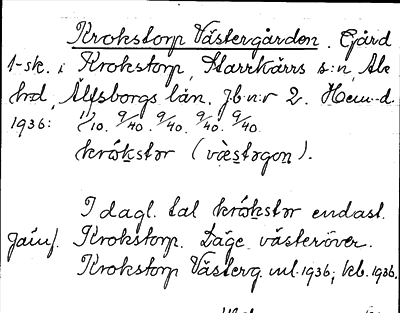 Krokstorp Västergården. Gård
1-sk. i Krokstorp, Starrkärrs s:n, Ale
hrd, Älfsborgs län. Jb:n:r 2. Hem:d.
1936: 1/10. 9/40. 9/40. 9/40. 9/40.
krókstər (væstəgon).
I dagl. tal krókstər endast.
Jämf. Krokstorp. Läge västeröver.
Krokstorp Västerg. ml. 1936; kb. 1936.